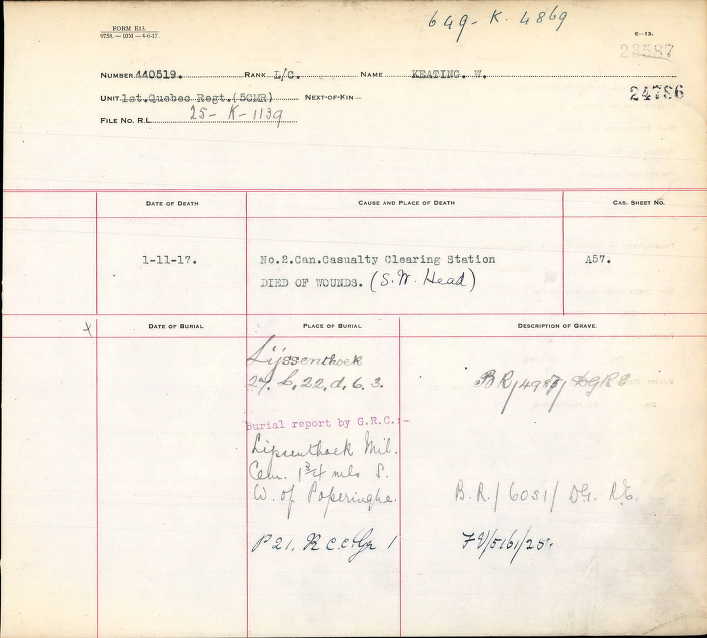 FORM R13.
649-K. 4869
C-13.
28587
NUMBER 440519. RANK L/C. NAME KEATING. W.
UNIT 1st.Quebec Regt.(5CMR) NEXT-OF-KIN
24786
FILE NO. R.L. 25-K-1139
DATE OF DEATH CAUSE AND PLACE OF DEATH CAS. SHEET NO.
1-11-17. No.2.Can.Casualty Clearing Station A57.
DIED OF WOUNDS. (S.W. Head)
X DATE OF BURIAL PLACE OF BURIAL DESCRIPTION OF GRAVE.
Lijssenthoek
27. L, 22, d, 6. 3.
Burial report by G.R.C.:-
Lijssenthoek Mil.
Cem. 1¾ mls S.
W. of Poperinghe.
B.R./6031/ DG. RE.
P 21. R C.C. Gr 1